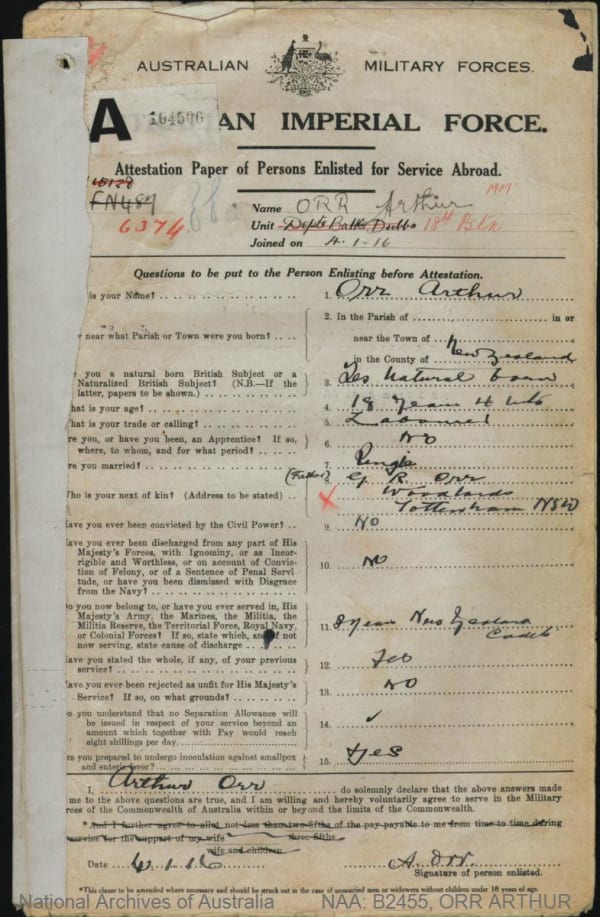 AUSTRALIAN MILITARY FORCES.
A
164596
AN IMPERIAL FORCE.
Attestation Paper of Persons Enlisted for Service Abroad.
FN487
6374
Name ORR Arthur MM
Unit Depts Batts Dubbo 18th Btn
Joined on 4.1-16
Questions to be put to the Person Enlisting before Attestation.
is your Name?
1. Orr Arthur
2. In the Parish of in or
near what Parish or Town were you born?
near the Town of
in the County of New Zealand
you a natural born British Subject or a
Naturalized British Subject? (N.B.—If the
latter, papers to be shown.)
3. Yes Natural born
hat is your age?
4. 18 years 4 mts
hat is your trade or calling?
5. Labourer
re you, or have you been, an Apprentice? If so,
where, to whom, and for what period?
6. NO
re you married?
7. Single
ho is your next of kin? (Address to be stated)
8. (Father) G R Orr
Woodlands
Tottenham NSW
ave you ever been convicted by the Civil Power?
9. NO
ave you ever been discharged from any part of His
Majesty's Forces, with Ignominy, or as Incor-
rigible and Worthless, or on account of Convic-
tion of Felony, or of a Sentence of Penal Servi
tude, or have you been dismissed with Disgrace
from the Navy?
10. NO
o you now belong to, or have you ever served in, His
Majesty's Army, the Marines, the Militia, the
Militia Reserve, the Territorial Force, Royal Navy,
or Colonial Forces? If so, state which, and if not
now serving, state cause of discharge
11. years New Zealand
Cadets
ave you stated the whole, if any, of your previous
service?
12. Yes
ave you ever been rejected as unfit for His Majesty's
Service? If so, on what grounds?
13. NO
o you understand that no Separation Allowance will
be issued in respect of your service beyond an
amount which together with Pay would reach
eight shillings per day
14. ✓
re you prepared to undergo inoculation against smallpox
and enteric fever?
15. Yes
I, Arthur Orr do solemnly declare that the above answers made
me to the above questions are true, and I am willing and hereby voluntarily agree to serve in the Military
rces of the Commonwealth of Australia within or beyond the limits of the Commonwealth.
*And I further agree to allot not less than two-fifths of the pay payable to me from time to time during
service for the support of my wife three-fifths
wife and children
Date 4.1.16 A. Orr
Signature of person enlisted.
*This clause to be amended where necessary and should be struck out in the case of unmarried men or widowers without children under 16 years of age.
National Archives of Australia NAA: B2455, ORR ARTHUR